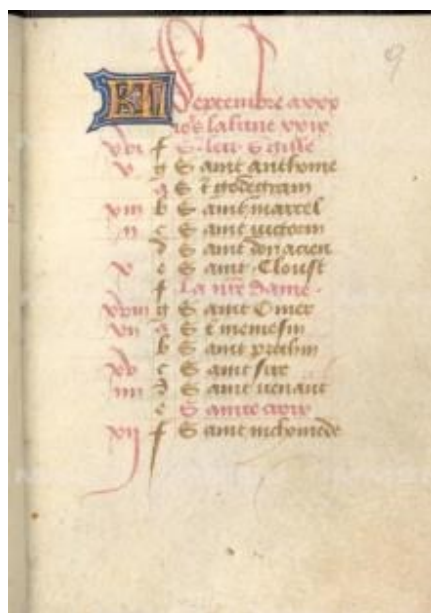 9
KL Septembre a xxx
iors la lune xxix
xvi f S. leu S gille
v g Saint anthoine
a S t godegram
xiii b Saint marcel
ii c Saint victorin
d Saint donacien
x e Saint Cloust
f La nre dame.
xviii g Saint Omer
vii a S t nemesin
b Saint prothin
xv c Saint sir
iiii d Saint venant
e Sainte croix
xii f Saint nichomede